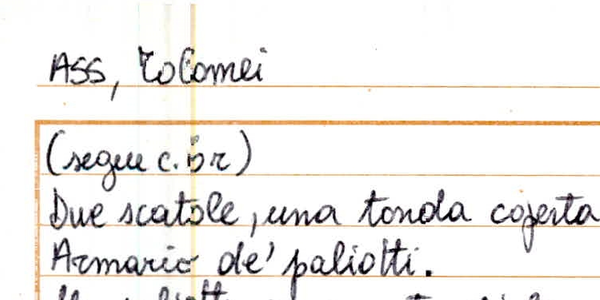 ASS, Tolomei
(segue c. 5 r)
Due scatole, una tonda coperta
Armario de' paliotti.